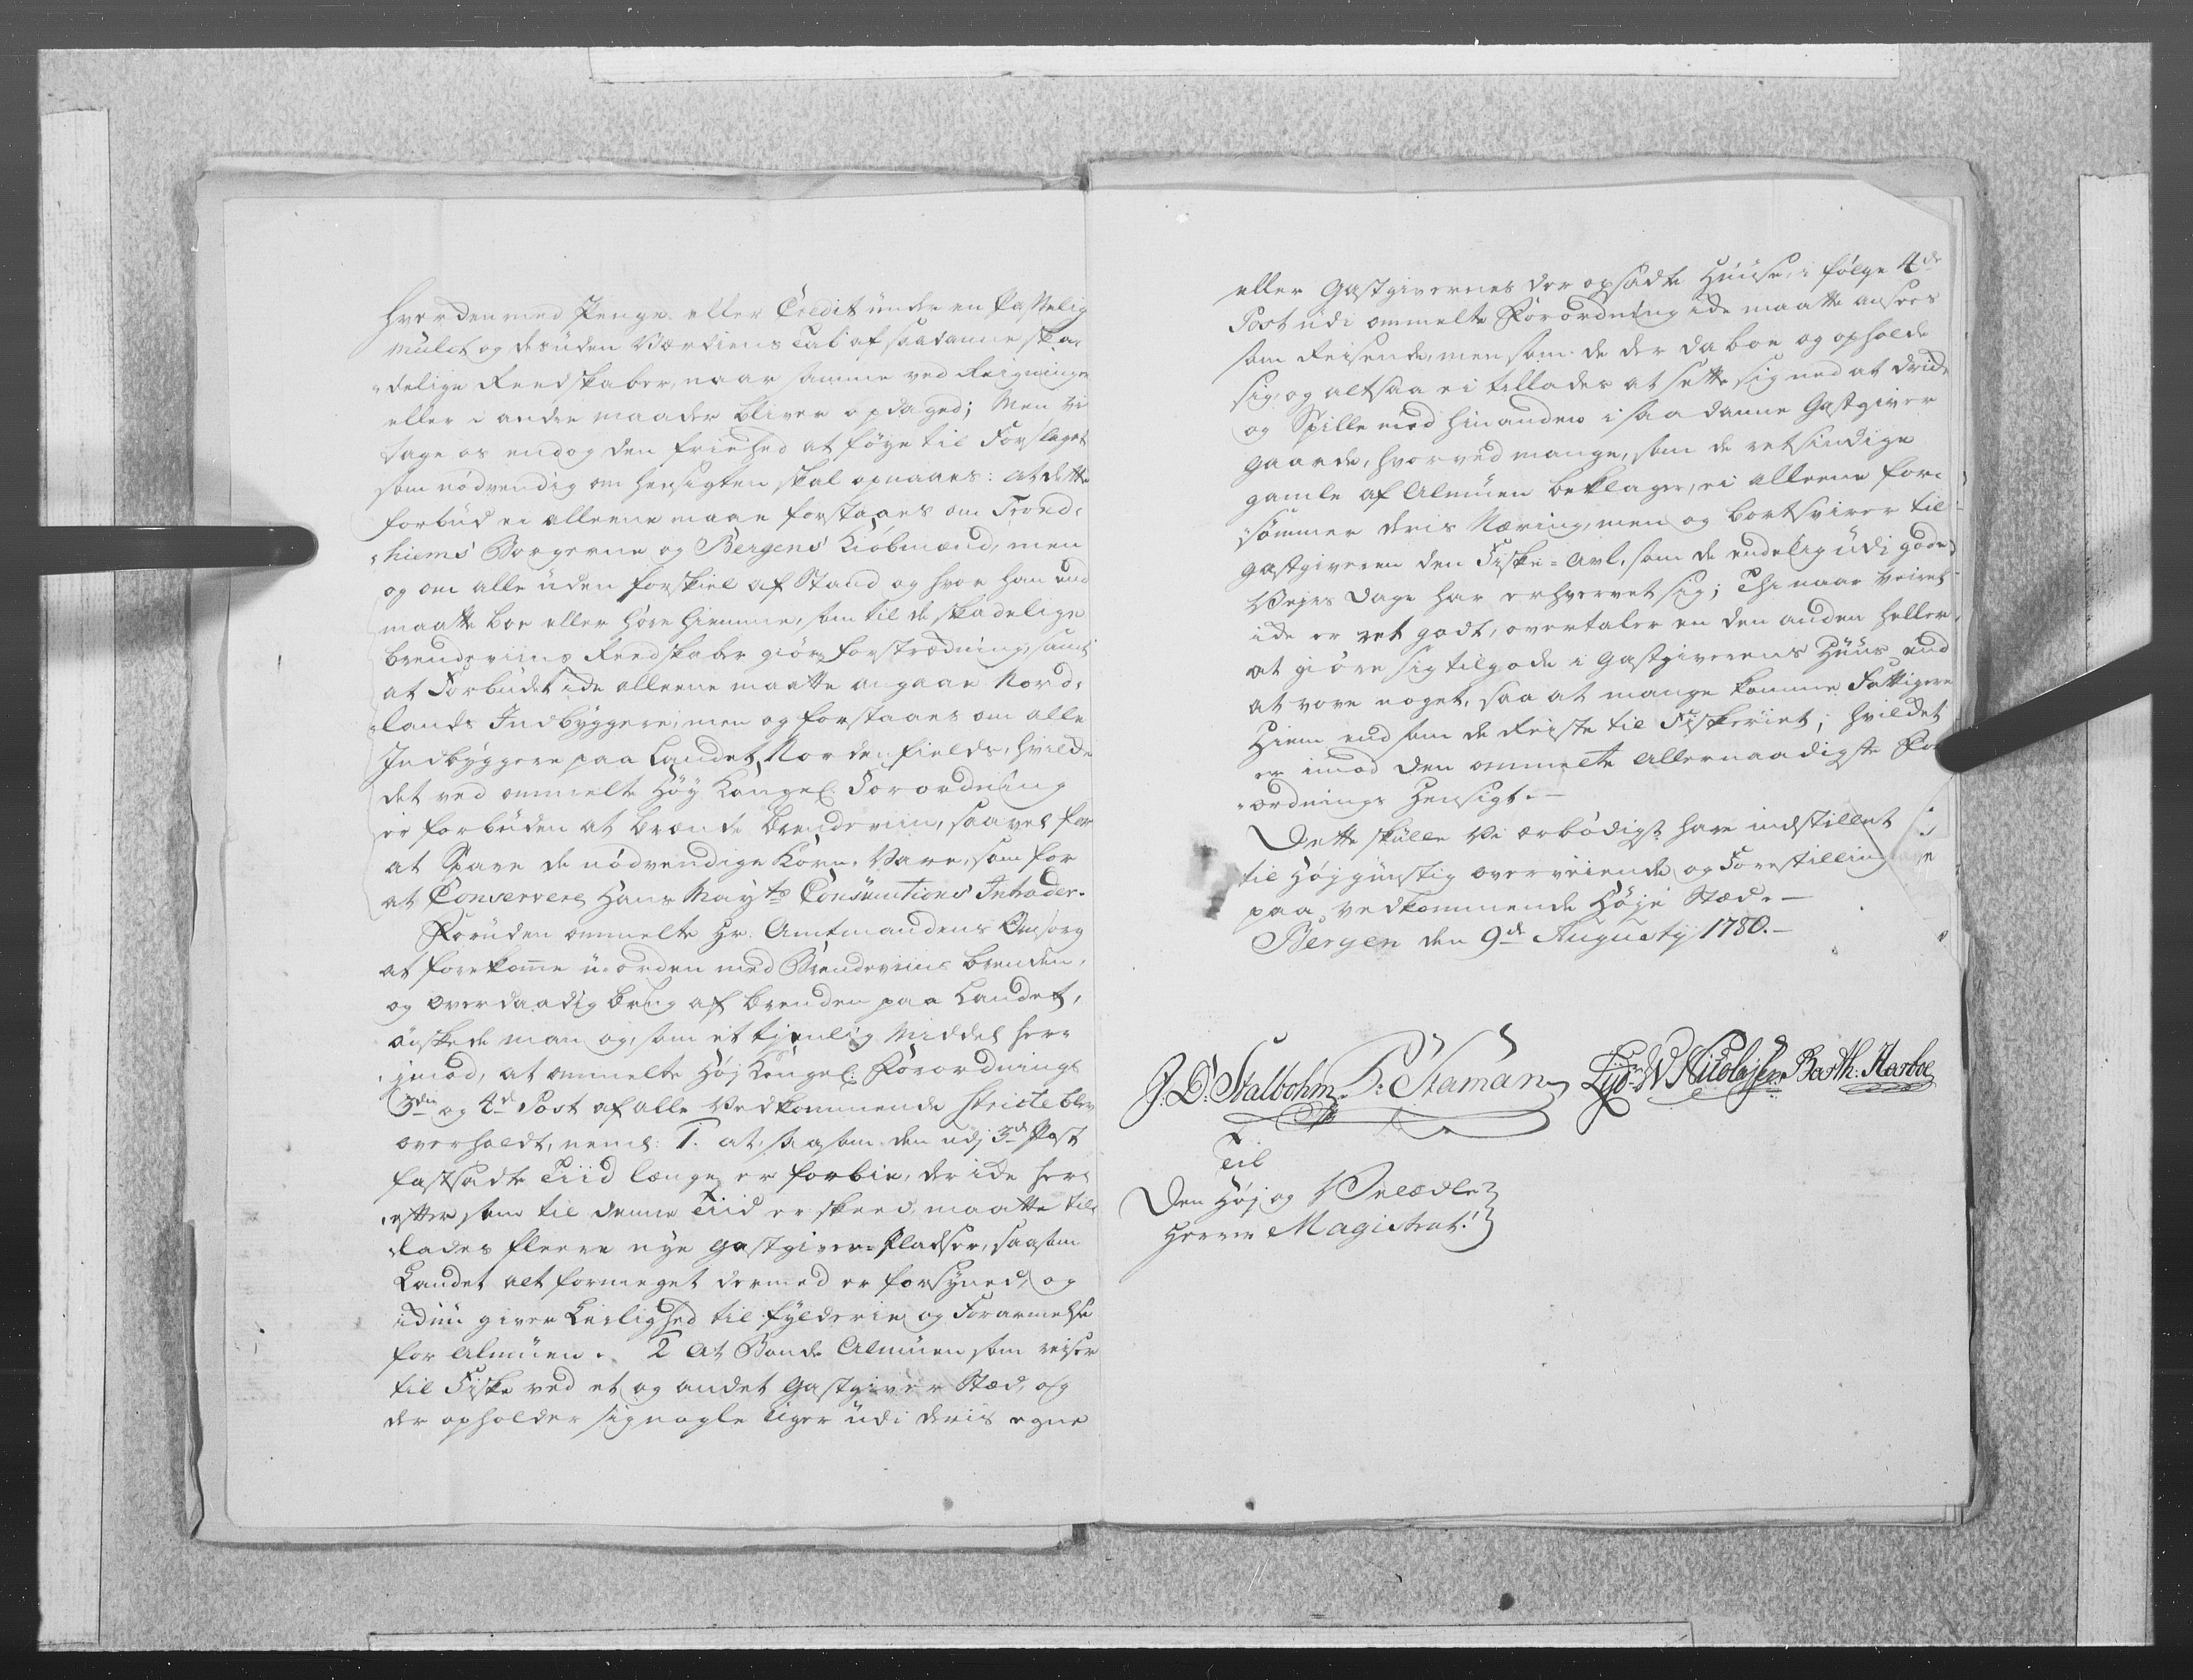 hverden med Penge eller Credit under en Passelig
Mulct og desuden Værdiens Tab af saadanne ska-
-delige Reedskaber, naar samme ved Reigninger
eller i andre maader bliver opdaged; Men vi
tage os endog den friehed at föye til Forslaget
som nödvendig om hensigten skal opnaaes: at dette
forbud ei alleene maae forstaaes om Trond-
-hiems Borgerne og Bergens Kiöbmænd, men
og om alle uden forskiel af Stand og hvor han end
maatte boe eller höre hiemme, som til de skadelige
brendeviins Reedskaber giör forstrædning, samt
at Forbudet icke alleene maatte angaae Nord-
-lands Indbyggere, men og forstaaes om alle
Indbyggere paa Landet Nordenfields, hvilcke
det ved ommelte Höy Kongel: Forordning
er forbuden at brænde brendeviin, saavel for
at Spare de nödvendige Korn-Vare, som for
at Conservere Hans Mayts Consumtions Intrader.
Foruden ommelte Hr. Amtmandens Omsorg
at forekome u-orden med Brendeviins brenden,
og overdaadig brug af brenden paa Landet,
önskede man og, som et tienlig Middel her-
imod, at ommelte Höj Kongel: Forordnings
3die og 4de Post af alle Vedkommende stricte blev
overholdt, neml: 1. at, saasom den udj 3de Post
fastsadte Tiid længe er forbie, der icke her-
-efter som til denne Tiid er skeed, maatte til-
-lades fleere nye Gastgiver-Pladser, saasom
Landet alt formeget dermed er forsyned, og
idün giver Leilighed til fylderie og Forarmelse
for Almuen. 2 At Bonde Almuen som reiser
til Fiske ved et og andet Gastgiver Stæd, og
der opholder sig nogle Uger udi deris egne
eller Gastgivernes der opsadte Huuse, i fölge 4de
Post udi ommelte Forordning icke maatte ansees
som Reisende, men som de der da boe og opholde
sig, og altsaa ei tillades at sette sig ned at dricke
og Spille med hinanden i saadanne Gastgiver
gaarde, hvorved mange, som de retsindige
gamle af Almuen beklager, ei alleene for-
-sömmer deris Næring, men og bortsvirer til
gastgiveren den Fiske-Avl, som de endelig udi gode
Vejrs Dage har erhvervet sig; Thi naar veiret
icke er ret godt, overtaler en den anden heller
at giöre sig tilgode i Gastgiverens Huus end
at vove noget, saa at mange komme Fattigere
Hiem end som de Reiste til Fiskeriet; hvilcket
er imod den ommelte Allernaadigste For
-ordnings Hensigt.—
Dette skulle Vi ærbödigst have indstillet
til Höjgunstig overveiende og Forestilling
paa vedkommende Höje Stæd.—
Bergen den 9de Augusty 1780.—
J. D. Stalbohm P. Staman Lyd. W Nicolaysen Barth: Harboe
Til
Den Höj og Velædle
Herrer Magistrat!